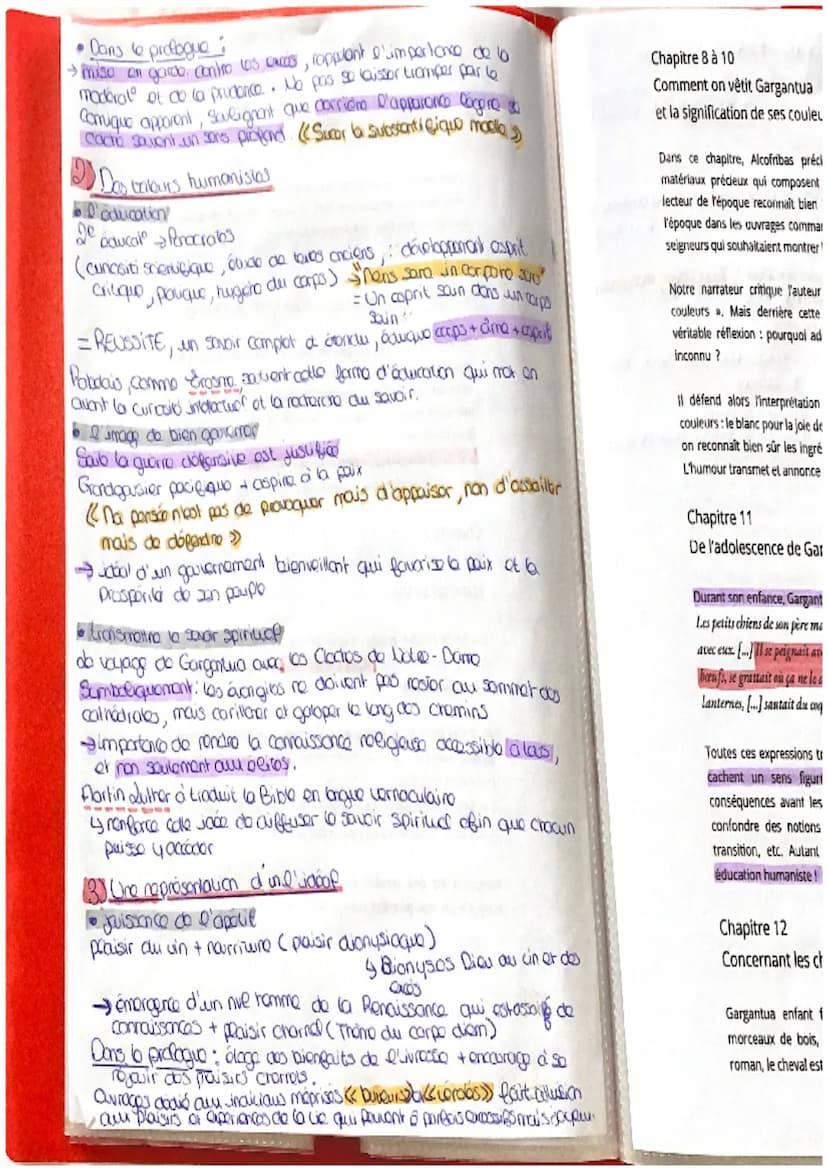 • Dans le prologue :
→ mise en garde contre les excès, rappelant l'importance de la
modérat° et de la prudence. Ne pas se laisser tromper par le
comique apparent, soulignant que derrière l'apparence légère se
cache souvent un sens profond. « Sucer la substantifique moelle »
2) Des valeurs humanistes
• l'éducation
2e éducat° → Ponocrates
(curiosité scientifique, étude de textes anciens, : développement esprit
critique, politique, hygiène du corps) → "Mens sana in corpore sano"
= Un esprit sain dans un corps
sain
= RÉUSSITE, un savoir complet et étendu, éduque corps + âme + esprit
Rabelais, comme Érasme, soutient cette forme d'éducation qui met en
avant la curiosité intellectuel et la recherche du savoir.
• l'image de bien gouverner
Seule la guerre défensive est justifiée
Grandgousier pacifique + aspire à la paix
« Ma pensée n'est pas de provoquer mais d'appaiser, non d'assaillir
mais de défendre »
→ idéal d'un gouvernement bienveillant qui favorise la paix et la
prospérité de son peuple
• transmettre le savoir spirituel
voyage de Gargantua avec les Cloches de Notre-Dame
Symboliquement : les évangiles ne doivent pas rester au sommet des
cathédrales, mais carillonner et galoper le long des chemins
→ importance de rendre la connaissance religieuse accessible à tous,
et non seulement aux élites.
Martin Luther à traduit la Bible en langue vernaculaire
↳ renforce cette idée de diffuser le savoir spirituel afin que chacun
puisse y accéder
3) Une représentation d'une l'idéal
• jouissance de l'apétit
plaisir du vin + nourriture (plaisir dionysiaque)
↳ Dionysos Dieu du vin et des
excès
→ émergence d'un nvl homme de la Renaissance qui est assoiffé de
connaissances + plaisir charnel (Thème du carpe diem)
Dans le prologue : éloge des bienfaits de l'ivresse + encourage à se
réjouir des plaisirs charnels.
Ouvrages dédié aux individus méprisés « buveurs » et « vérolés » fait allusion
aux plaisirs et expériences de la vie qui peuvent ê parfois excessifs mais
Chapitre 8 à 10
Comment on vêtit Gargantua
et la signification de ses couleu
Dans ce chapitre, Alcofribas préci
matériaux précieux qui composent
lecteur de l'époque reconnaît bien
l'époque dans les ouvrages comma
seigneurs qui souhaitaient montrer
Notre narrateur critique l'auteur
couleurs ». Mais derrière cette
véritable réflexion : pourquoi ad
inconnu ?
Il défend alors l'interprétation
couleurs : le blanc pour la joie de
on reconnaît bien sûr les ingré
L'humour transmet et annonce
Chapitre 11
De l'adolescence de Gar
Durant son enfance, Gargant
Les petits chiens de son père ma
avec eux. [...] Il se peignait av
bœufs, se grattait où ça ne le d
lanternes, [...] sautait du coq
Toutes ces expressions tr
cachent un sens figuré
conséquences avant les
confondre des notions
transition, etc. Autant
éducation humaniste !
Chapitre 12
Concernant les ch
Gargantua enfant f
morceaux de bois,
roman, le cheval est